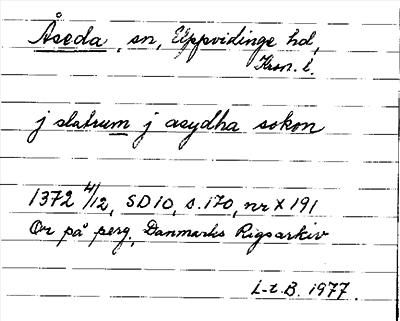 Åseda, sn, Uppvidinge hd,
Kron. l.
j slatrum j asydha sokon
1372 4/12, SD10, s. 170, nr X 191
Or på perg., Danmarks Rigsarkiv
L-t.B. 1977.